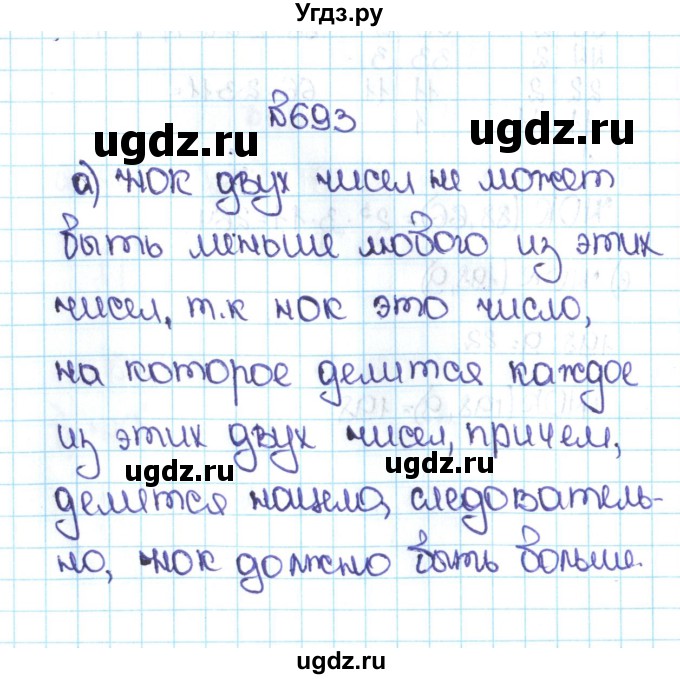 Угдз.ру
№693
ugdz.ru ugdz.ru
а) НОК двух чисел не может
быть меньше любого из этих
чисел, т.к НОК это число,
на которое делится каждое
из этих двух чисел, причем,
ugdz.ru ugdz.ru
делится нацело, следователь-
но, НОК должно быть больше.
ugdz.ru